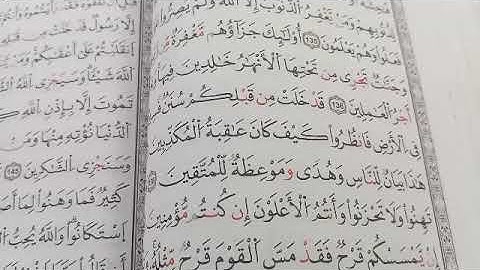 وَمَن يَغْفِرُ ٱلذُّنُوبَ إِلَّا ٱللَّهُ وَلَمْ يُصِرُّوا۟
فَعَلُوا۟ وَهُمْ يَعْلَمُونَ ١٣٥ أُو۟لَٰٓئِكَ جَزَآؤُهُم مَّغْفِرَةٌ
وَجَنَّٰتٌ تَجْرِى مِن تَحْتِهَا ٱلْأَنْهَٰرُ خَٰلِدِينَ فِيهَا
أَجْرُ ٱلْعَٰمِلِينَ ١٣٦ قَدْ خَلَتْ مِن قَبْلِكُمْ سُنَنٌ
فِى ٱلْأَرْضِ فَٱنظُرُوا۟ كَيْفَ كَانَ عَٰقِبَةُ ٱلْمُكَذِّبِينَ
هَٰذَا بَيَانٌ لِّلنَّاسِ وَهُدًى وَمَوْعِظَةٌ لِّلْمُتَّقِينَ
تَهِنُوا۟ وَلَا تَحْزَنُوا۟ وَأَنتُمُ ٱلْأَعْلَوْنَ إِن كُنتُم مُّؤْمِنِينَ
إِن يَمْسَسْكُمْ قَرْحٌ فَقَدْ مَسَّ ٱلْقَوْمَ قَرْحٌ مِّثْلُهُۥ
إِلَّا رَسُولٌ قَدْ خَلَتْ
ٱنقَلَبْتُمْ عَلَىٰٓ أَعْقَٰبِكُمْ
ٱللَّهَ شَيْـًٔا وَسَيَجْزِى ٱللَّهُ
تَمُوتَ إِلَّا بِإِذْنِ ٱللَّهِ
ٱلدُّنْيَا نُؤْتِهِۦ مِنْهَا وَمَن
وَسَنَجْزِى ٱلشَّٰكِرِينَ ١٤٥
كَثِيرٌ فَمَا وَهَنُوا۟ لِمَآ
ٱسْتَكَانُوا۟ وَٱللَّهُ يُحِبُّ